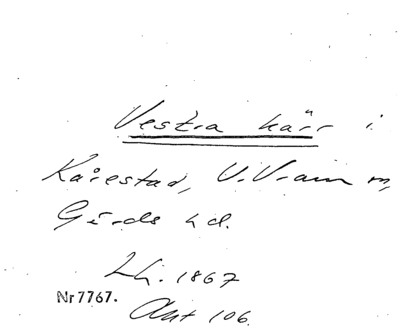 Vestra kärr i
Kårestad, V. Vram m,
Gärds hd.
Lh. 1867
Nr 7767.
Akt 106.